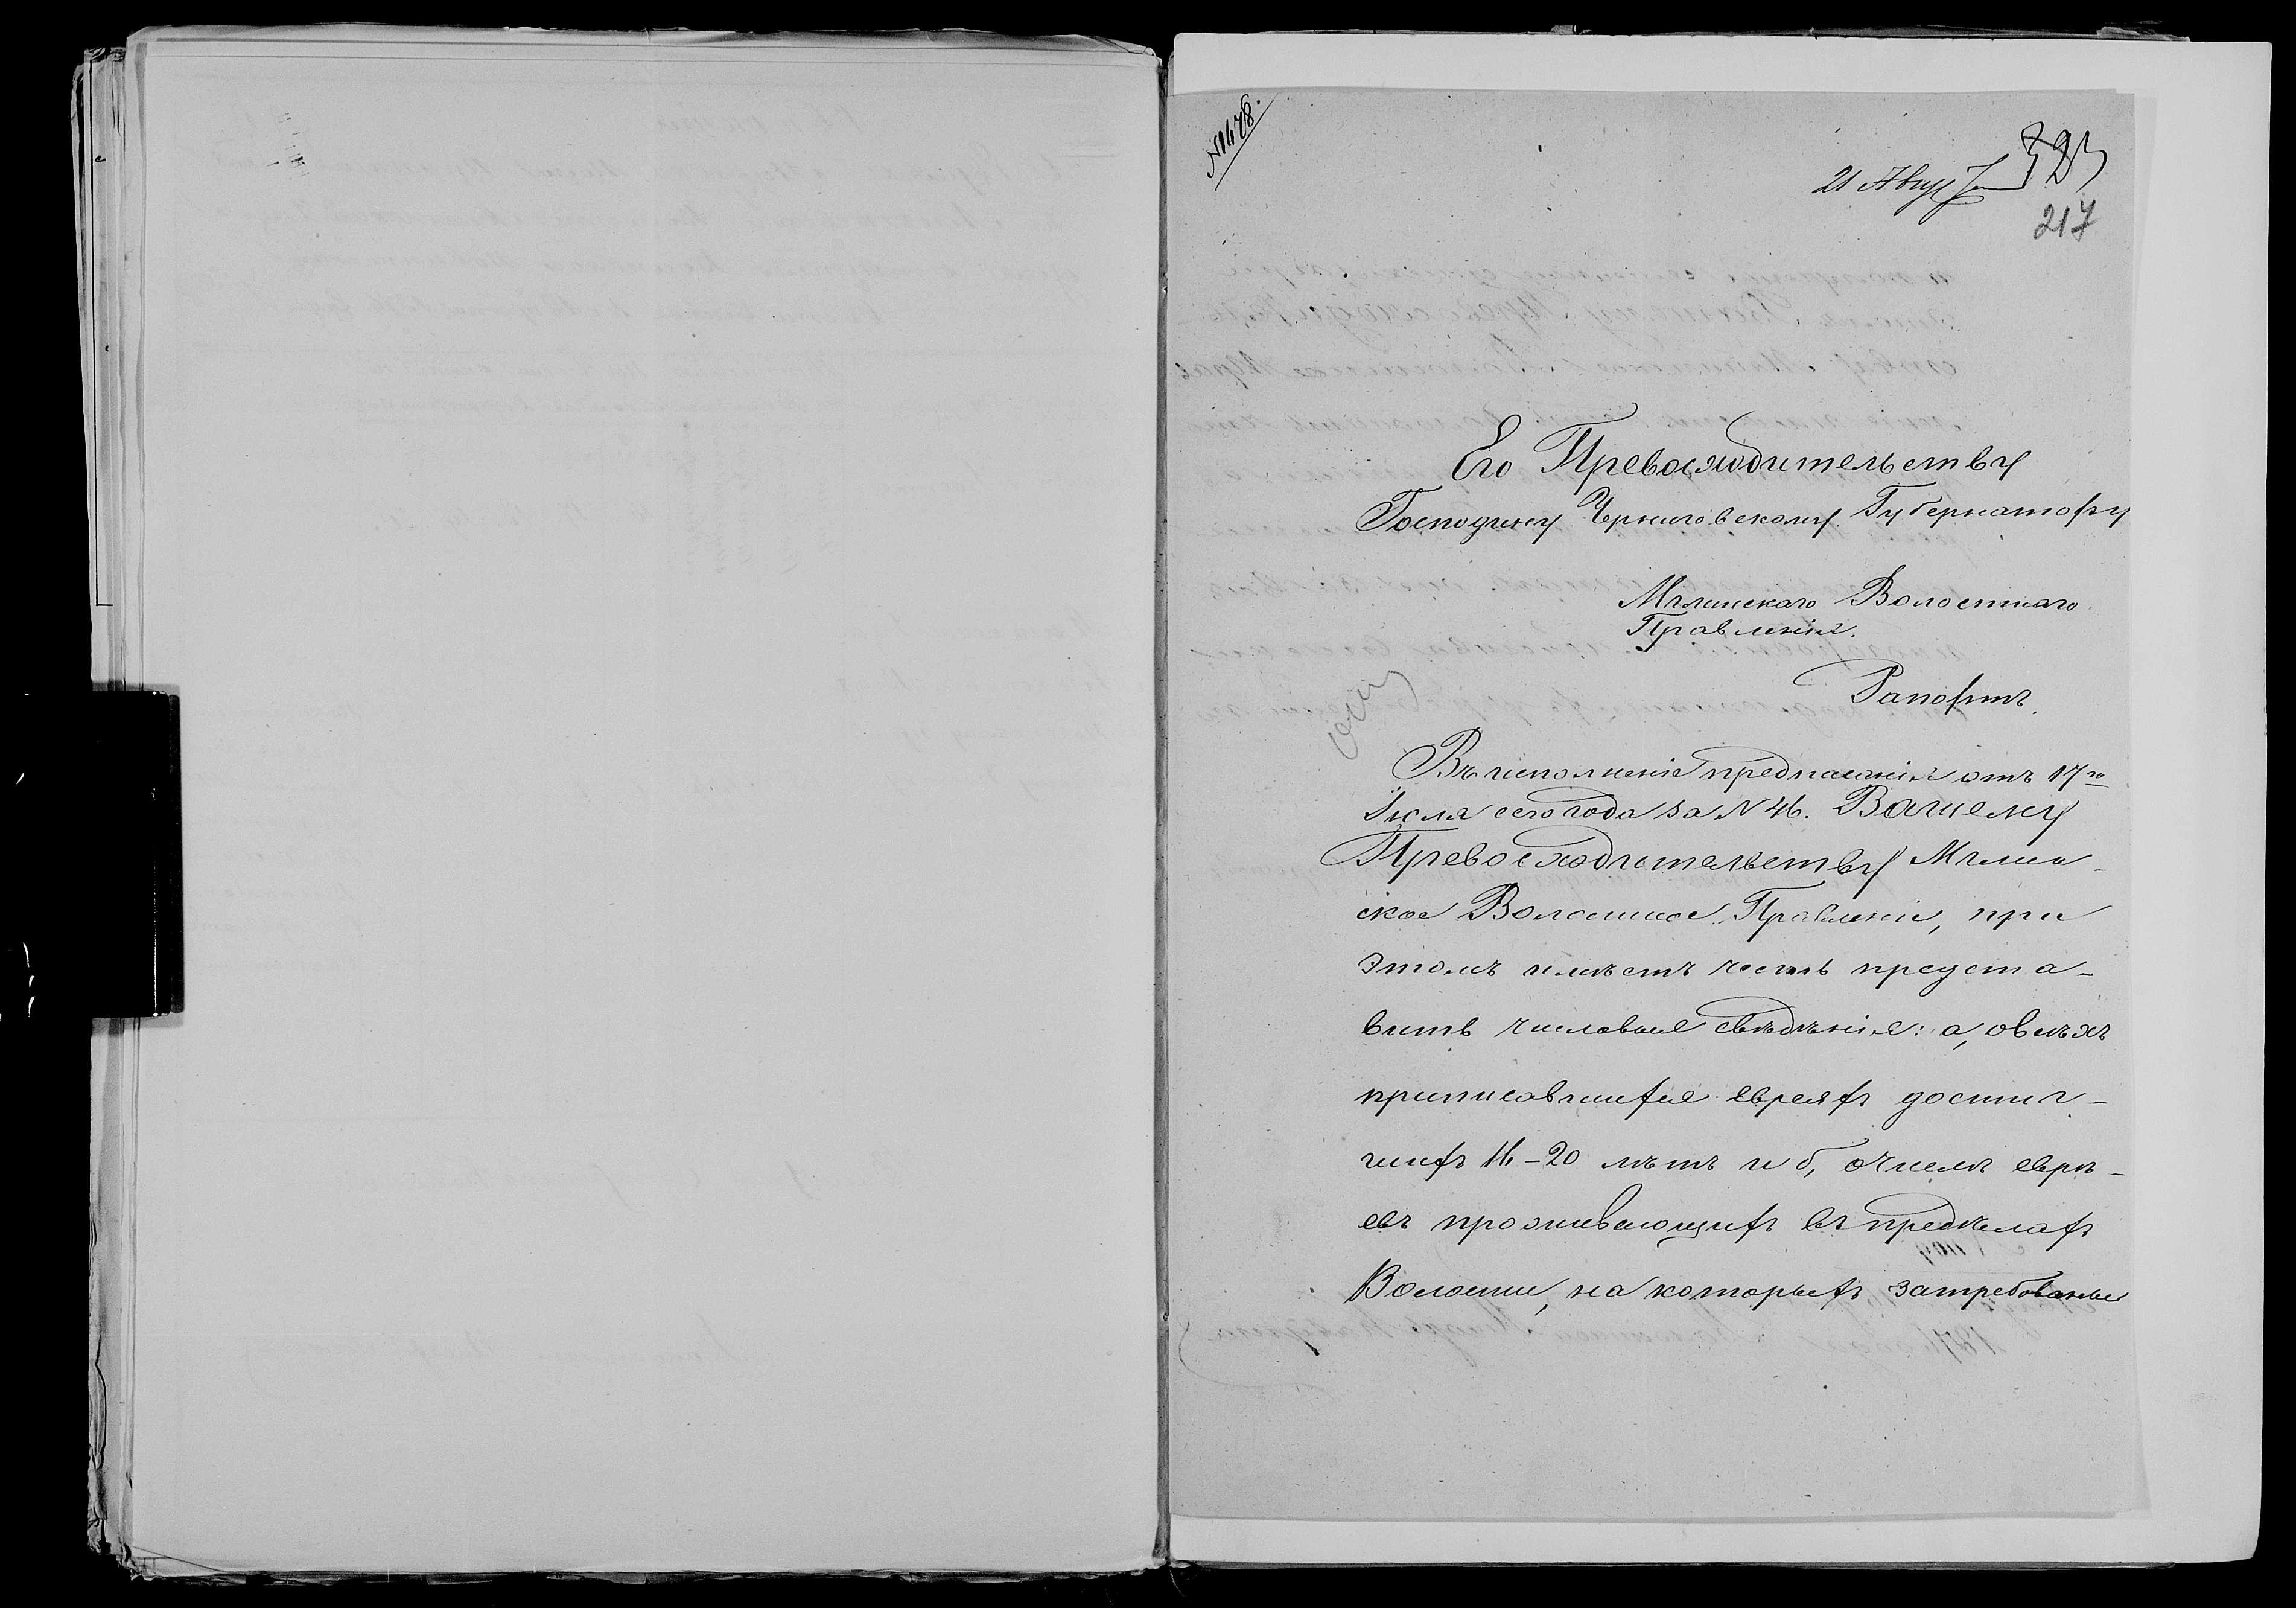 №1478.
21 Авгус
523
217
Его Превосходительству
Господину Черниговскому Губернатору
Мглинскаго Волостнаго
Правленія.
Рапортъ.
Въ исполненіе предписанія отъ 17го
Іюля сего года за N 46. Вашему
Превосходительству Мглин-
ское Волостное Правленіе, при
этомъ имѣетъ честь предста-
вить числовыя свѣдѣнія: а, овсѣхъ
приписавшихся евреяхъ достиг-
шихъ 16-20 лѣтъ и б, очислѣ евре-
евъ проживающихъ въ предѣлахъ
Волости, на которыхъ затребованы